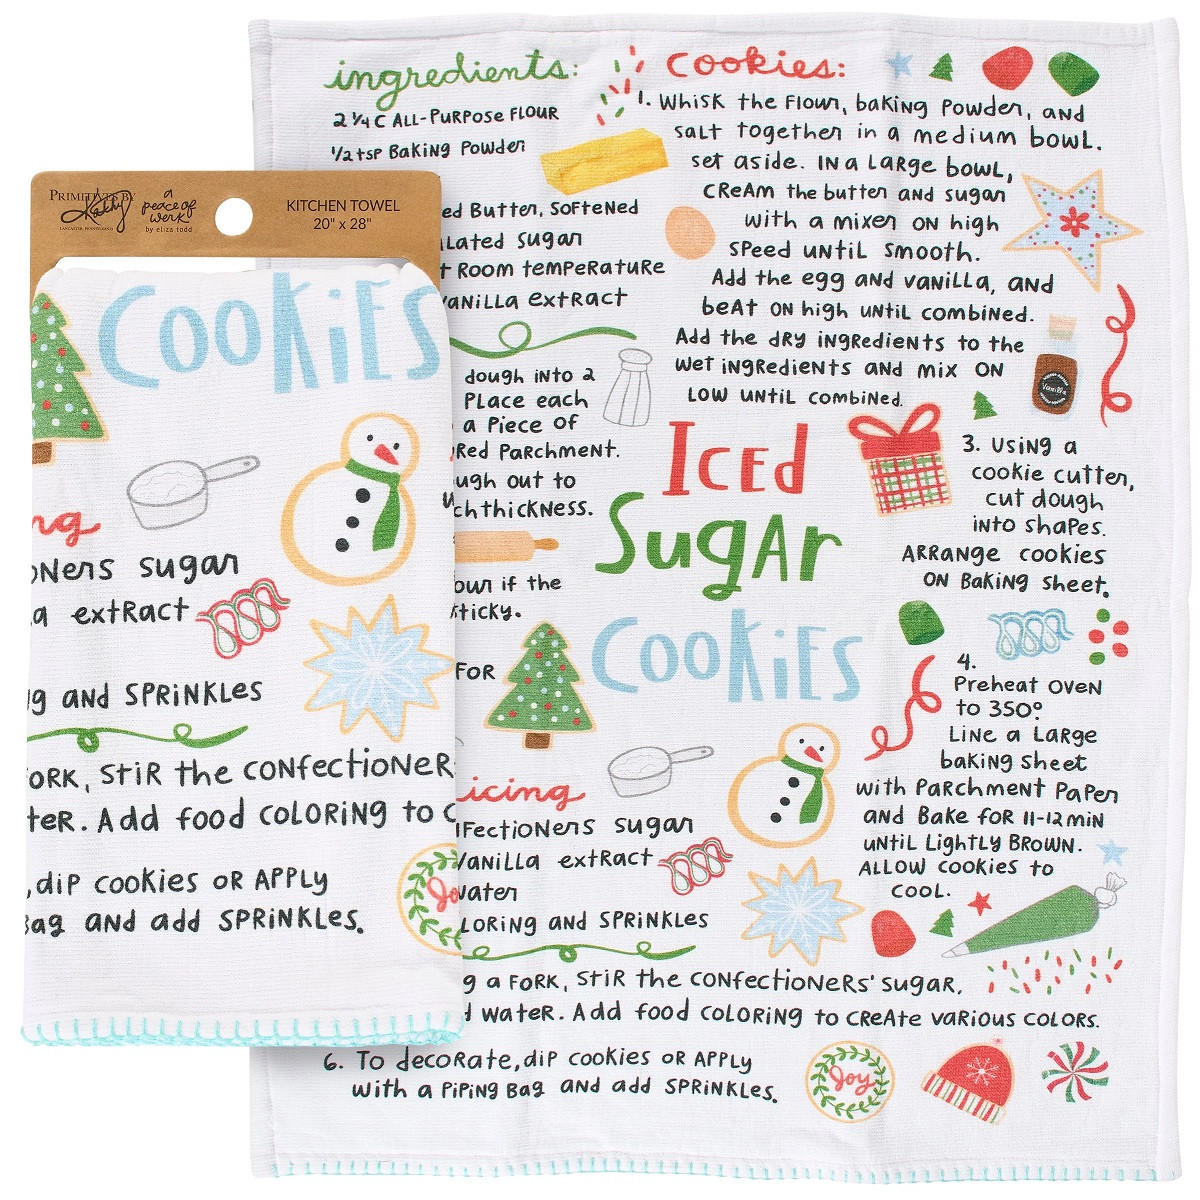 PRIMITIVES BY
Kathy
LANCASTER, PENNSYLVANIA
a
peace of
werk
by eliza todd
KITCHEN TOWEL
20" x 28"
COOKIES
sugar
extract
AND SPRINKLES
FORK, STIR the CONFECTIONER
Add food COLORING to
, dip cookies OR APPLY
AND add SPRINKLES.
Joy
ingredients:
2 1/4 C ALL-PURPOSE FLOUR
1/2 tsp Baking Powder
Butter, SOFTENED
sugar
ROOM temPeRature
extract
dough into 2
PLace each
a Piece of
Parchment.
out to
thickness.
if the
FOR
icing
sugar
Vanilla extract
water
AND SPRINKLES
g a FORK, STIR the CONFECTIONERS' sugar,
water. Add food COLORING to CREATE VARIOUS COLORS.
6. To decorate, dip cookies OR APPLY
with a PIPING BAG AND add SPRINKLES.
Joy
cookies:
1. Whisk the Flour, baking Powder, and
salt together in a medium bowl.
set aside. In a LARGE bowl,
CREAM the butter and sugar
with a mixer on high
SPeed until smooth.
Add the egg and vanilla, and
beat on high until combined.
Add the DRY ingredients to the
wet ingRedients and mix on
LOW until combined.
Vanilla
ICED
SUGAR
COOKIES
3. Using a
cookie cutter,
cut dough
into shapes.
ARRANGE cookies
ON Baking sheet.
4.
Preheat oven
to 350°.
Line a Large
baking sheet
with Parchment Paper
and Bake for 11-12 min
until Lightly Brown.
ALLOW cookies to
cool.